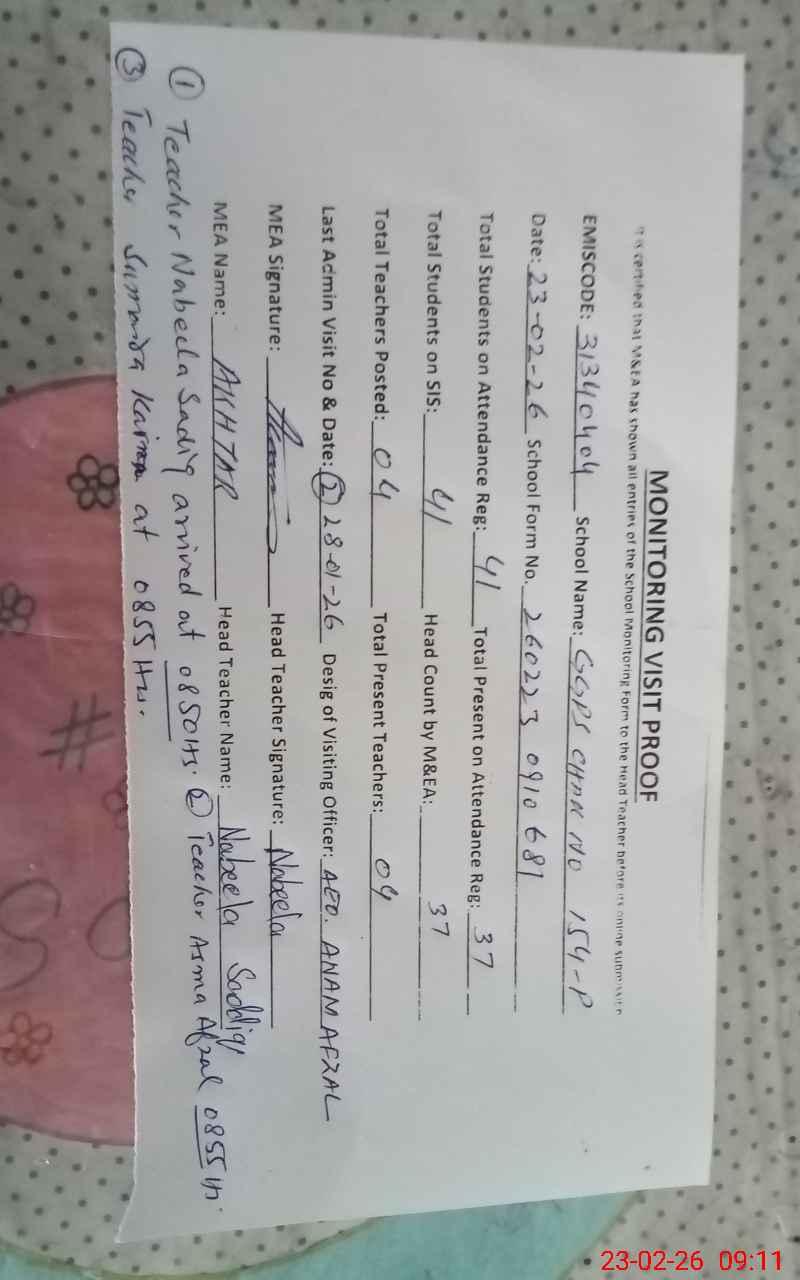 MONITORING VISIT PROOF
It is certified that M&EA has shown all entries of the School Monitoring Form to the Head Teacher before its online submission
EMISCODE: 31340404 School Name: GGPS CHAK NO 154-P
Date: 23-02-26 School Form No. 260223 0910681
Total Students on Attendance Reg: 41 Total Present on Attendance Reg: 37
Total Students on SIS: 41 Head Count by M&EA: 37
Total Teachers Posted: 04 Total Present Teachers: 04
Last Admin Visit No & Date: (2) 28-01-26 Desig of Visiting Officer: AEO. ANAM AFZAL
MEA Signature: Head Teacher Signature: Nabeela
MEA Name: AKHTAR Head Teacher Name: Nabeela Saddiq
① Teacher Nabeela Sadiq arrived at 0850Hs. ② Teacher Asma Afzal 0855 Hr.
③ Teacher at 0855 Hrs.
23-02-26 09:11